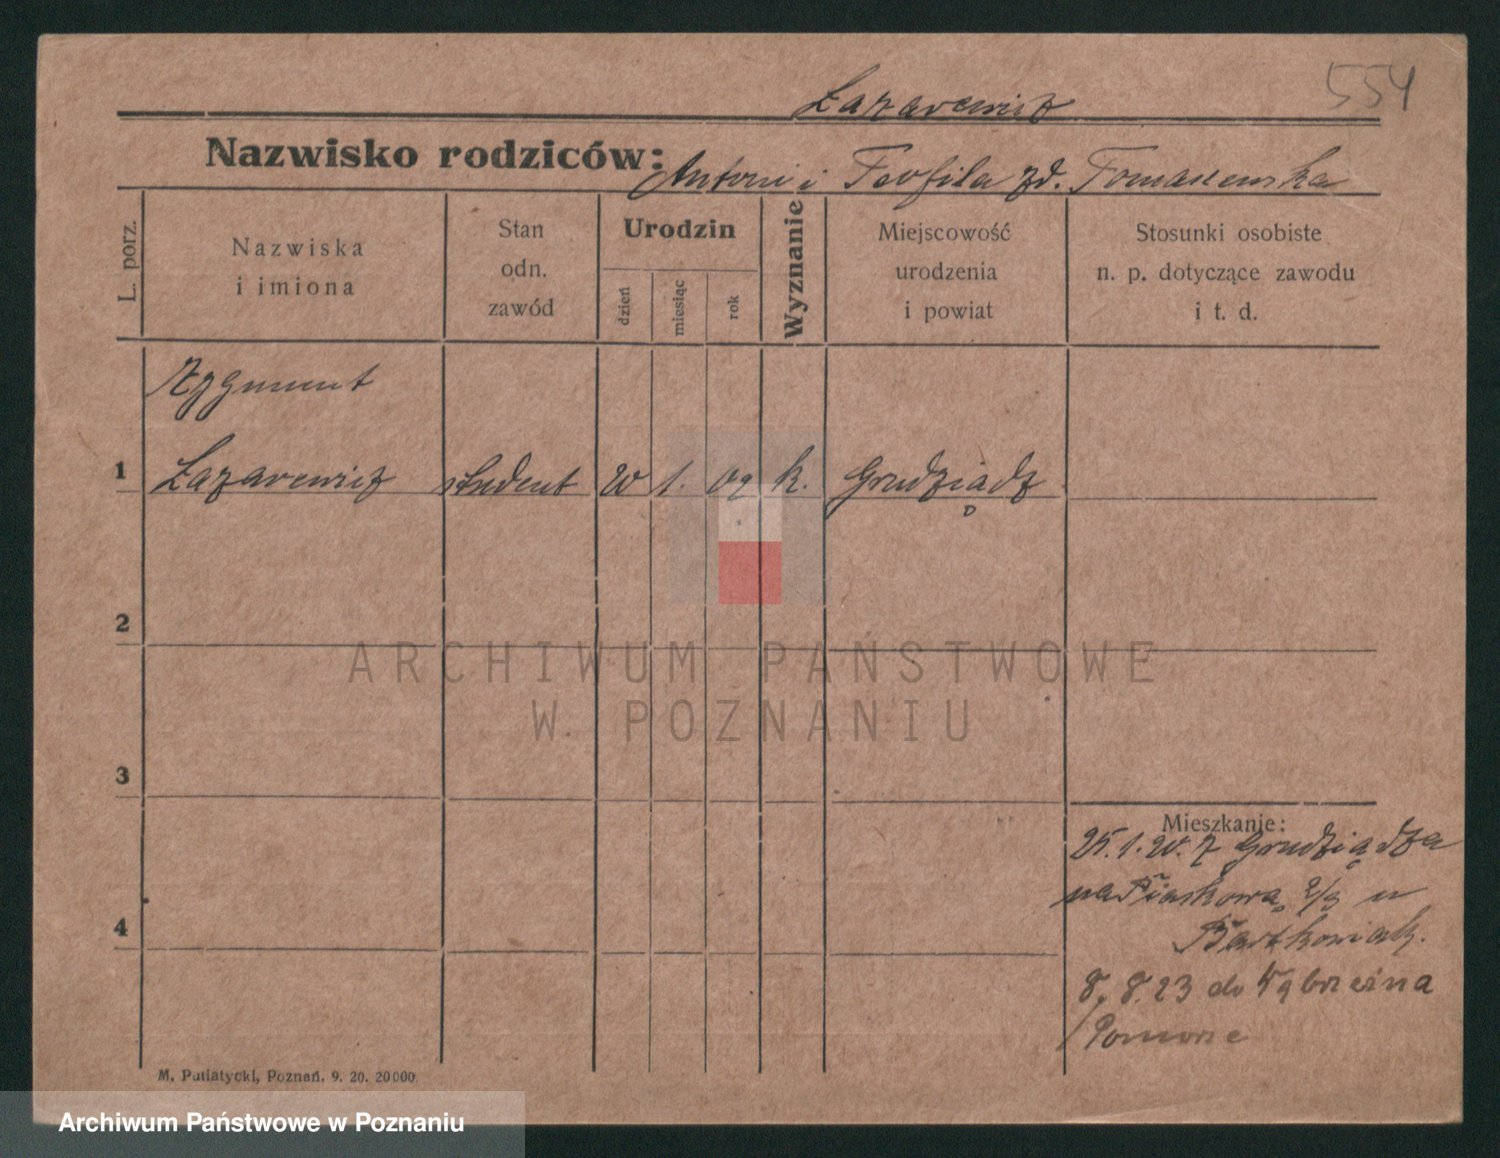 554
Łazarewicz
Nazwisko rodziców: Antoni i Teofila zd. Tomaszewska
L. porz.
Nazwiska
i imiona
Stan
odn.
zawód
Urodzin
dzień
miesiąc
rok
Wyznanie
Miejscowość
urodzenia
i powiat
Stosunki osobiste
n. p. dotyczące zawodu
i t. d.
Zygmunt
1 Łazarewicz student 20 1. 09 k. Grudziądz
2
ARCHIWUM PAŃSTWOWE
W POZNANIU
3
Mieszkanie:
25.1.20. z Grudziądza
na Piaskową 2/3 u
Bartkowiak.
4
8. 8. 23 do Wąbrzeźna
/Pomorze
M. Putiatycki, Poznań. 9. 20. 20000.
Archiwum Państwowe w Poznaniu